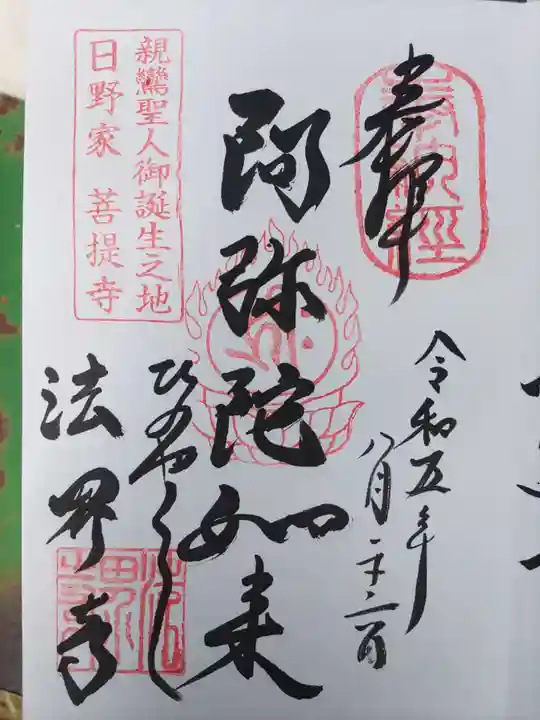 奉拝
奉納経
令和五年
八月二十二日
阿弥陀如来
ひのやくし
法界寺
親鸞聖人御誕生之地
日野家 菩提寺